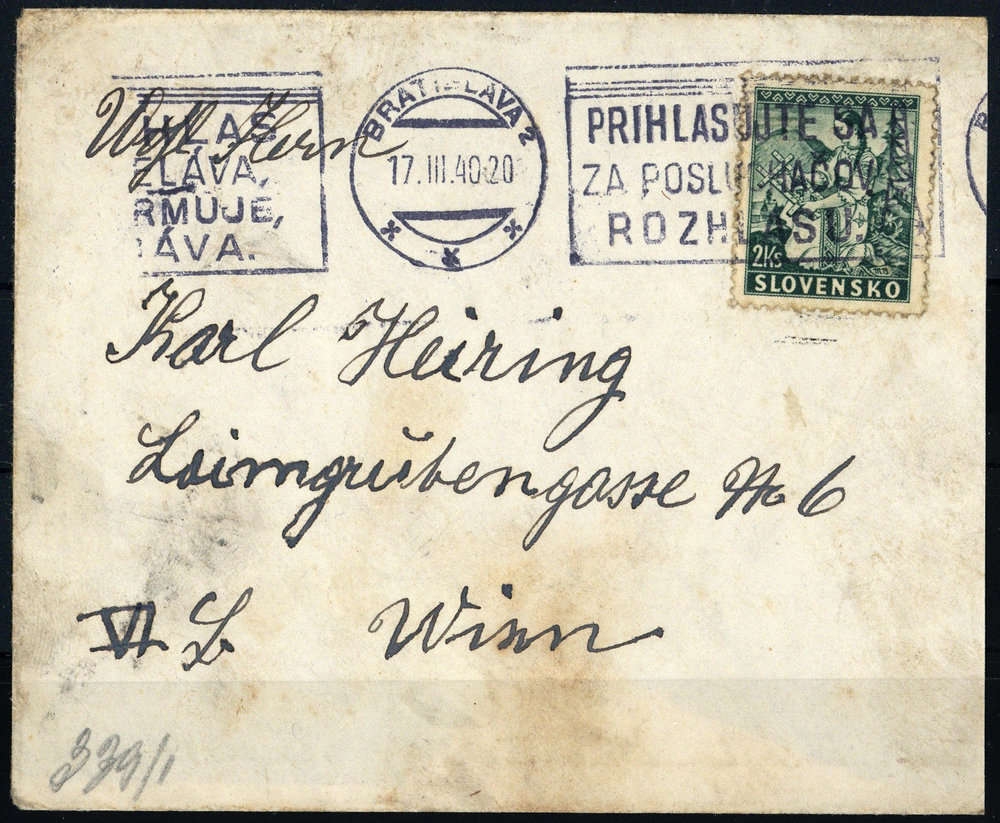 HLAS
ZLÁVA,
RMUJE,
ÁVA.
BRATISLAVA 2
17.III.40-20
PRIHLASUJTE SA
ZA POSLUCHÁČOV
ROZHLASU.
2 Ks
SLOVENSKO
Herrn
Karl Heiring
Laimgrubengasse № 6
VI. B. Wien
339/1